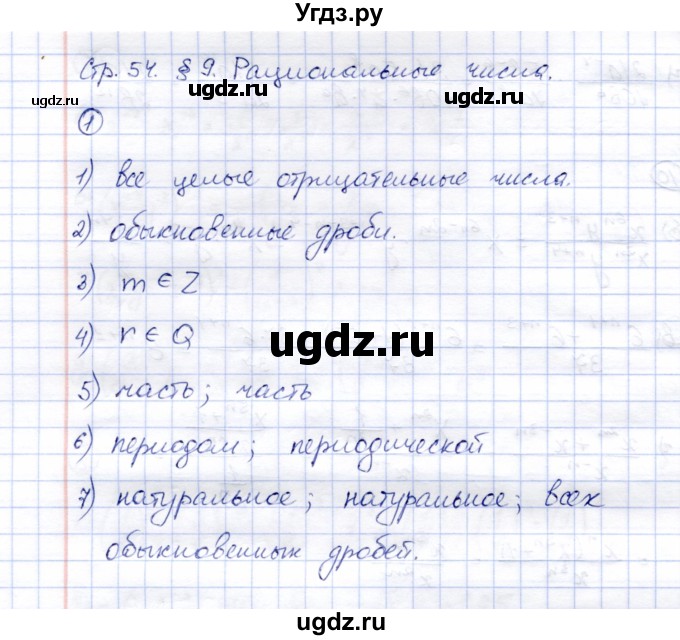 Угдз.ру
Стр. 54. § 9. Рациональные числа.
ugdz.ru ugdz.ru
1
1) все целые отрицательные числа.
2) обыкновенные дроби.
3) m ∈ Z
4) r ∈ Q
ugdz.ru
5) часть; часть
6) периодом; периодической
7) натуральное; натуральное; всех
обыкновенных дробей.
ugdz.ru